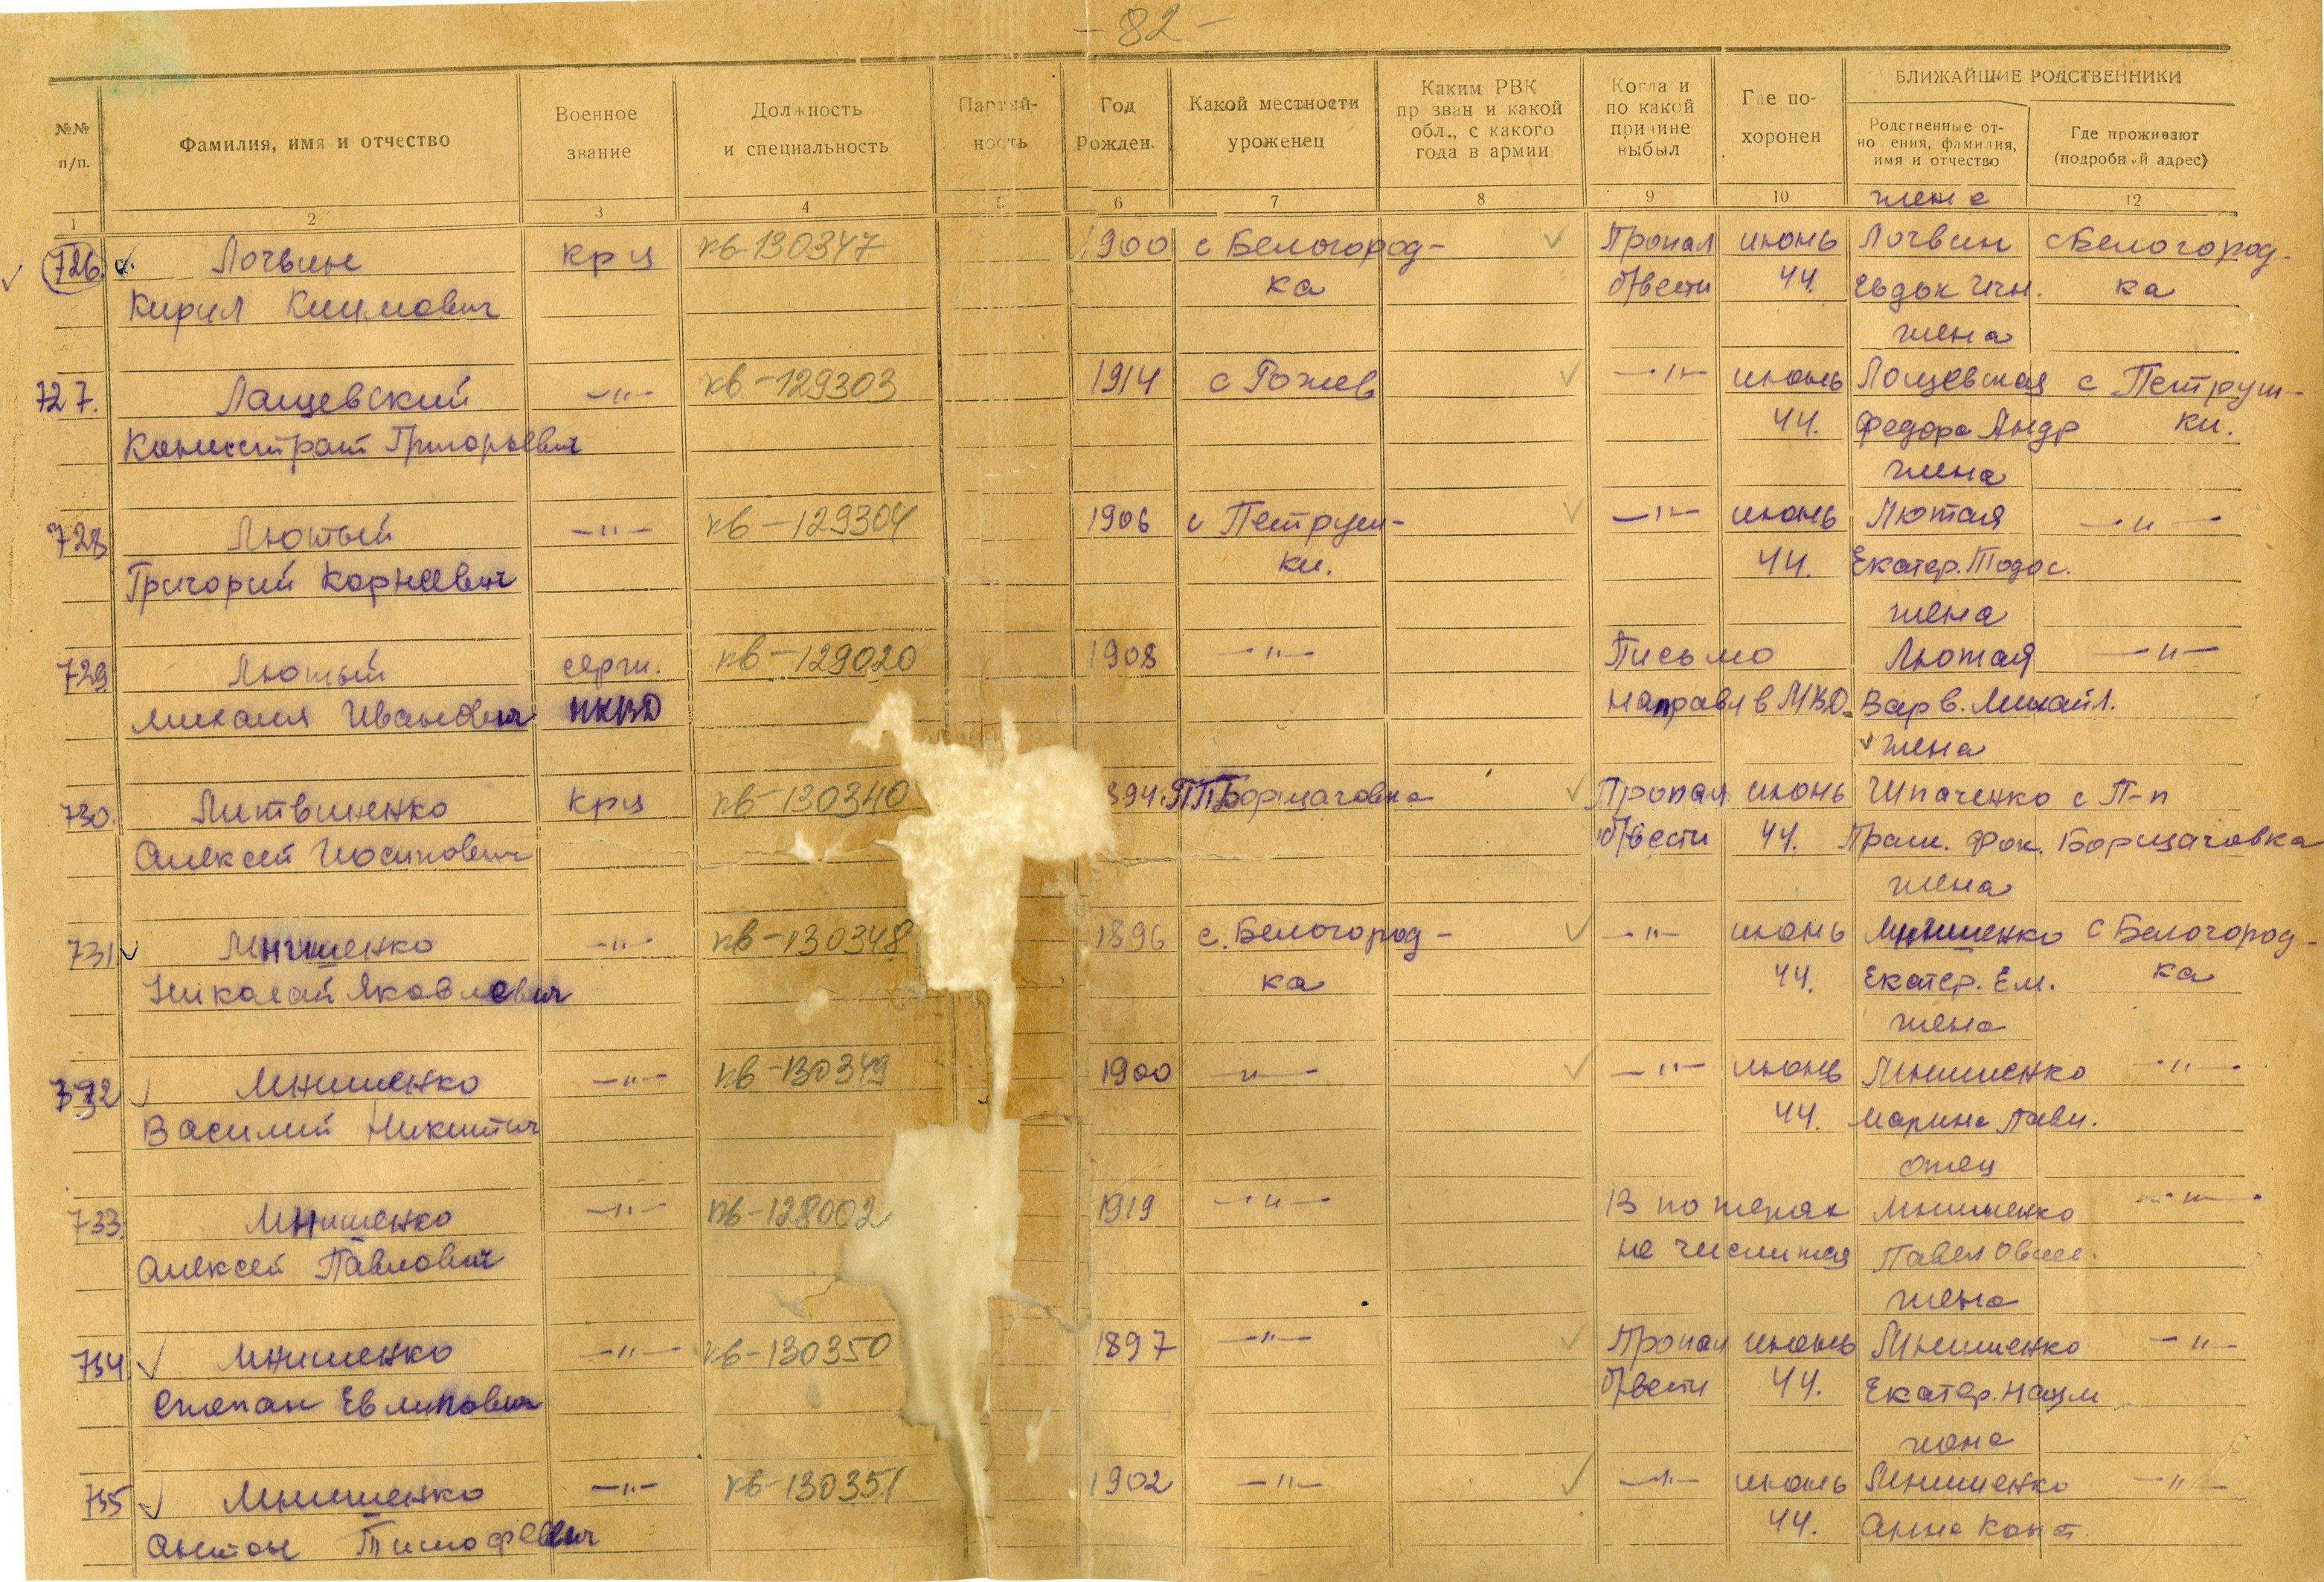 - 82 -
БЛИЖАЙШИЕ РОДСТВЕННИКИ
№№ п/п. Фамилия, имя и отчество Военное звание Должность и специальность Партийность Год Рожден. Какой местности уроженец Каким РВК призван и какой обл., с какого года в армии Когда и по какой причине выбыл Где похоронен Родственные отношения, фамилия, имя и отчество Где проживают (подробный адрес)
1 2 3 4 5 6 7 8 9 10 12
жена
726. Лочвин крц кв-130347 1900 с Белогород- Пропал июнь Лочвин с Белогород-
Кирил Климович ка б/вести 44. Евдок Игн. ка
жена
727. Лащевский -"- кв-129303 1914 с Рожев -"- июнь Лащевская с Петруш-
Каннстрат Григорьевич 44. Федора Андр ки.
жена
728 Лютый -"- кв-129304 1906 с Петруш- -"- июнь Лютая -"-
Григорий Корневич ки. 44. Екатер. Тодос.
жена
729 Лютый серж. кв-129020 1908 -"- Письмо Лютая -"-
Михаил Иванович НКВД направл в МВД. Варв. Михайл.
жена
730. Литвиненко крц кв-130340 894 ПП Борщаговка Пропал июнь Шпаченко с П-п
Алексей Иосипович б/вести 44. Праск. Фок. Борщаговка
жена
731 Мнишенко -"- кв-130348 1896 с. Белогород- -"- июнь Мнишенко с Белогород-
Николай Яковлевич ка 44. Екатер. Ем. ка
жена
732 Мнишенко -"- кв-130349 1900 -"- -"- июнь Мнишенко -"-
Василий Никитич 44. Марина Павл.
отец
733. Мнишенко -"- кв-128002 1919 -"- В потерях Мнишенко -"-
Алексей Павлович не числится Павел Овсее.
жена
734 Мнишенко -"- кв-130350 1897 -"- Пропал июнь Мнишенко -"-
Степан Евлипович б/вести 44. Екатер. Наум
жена
735 Мнишенко -"- кв-130351 1902 -"- -"- июнь Мнишенко -"-
Антон Тимофеевич 44. Анна Конст.